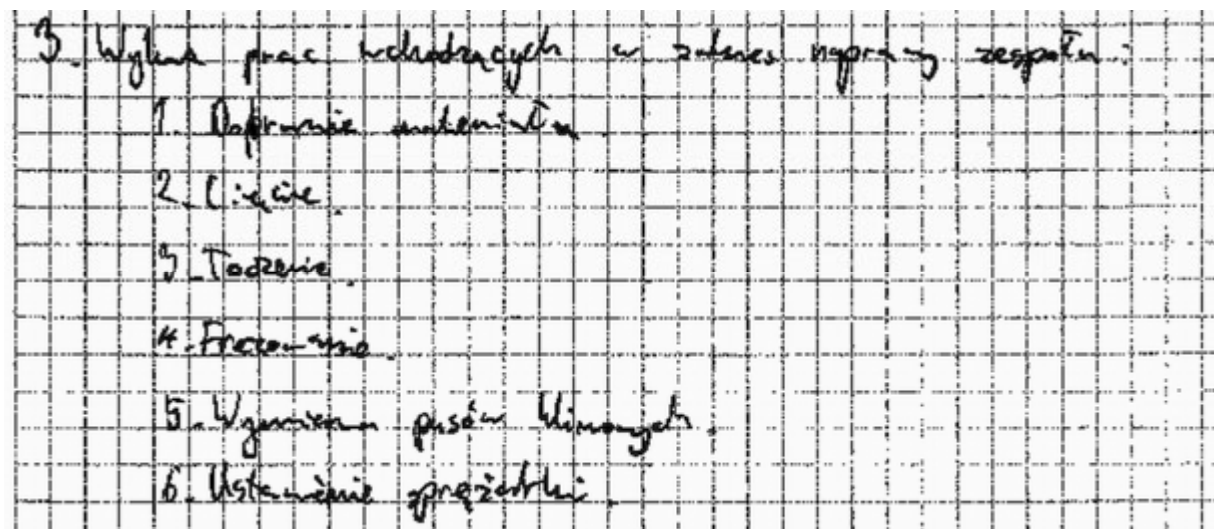 3. Wykaz prac wchodzących w zakres naprawy zespołu:
1. Dobranie materiału.
2. Cięcie.
3. Toczenie.
4. Frezowanie.
5. Wymiana pasów klinowych.
6. Ustawienie sprężarki.